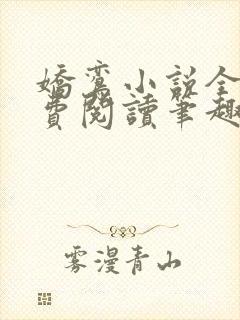 嬌鸞小說全
費閱讀筆趣
雾漫青山